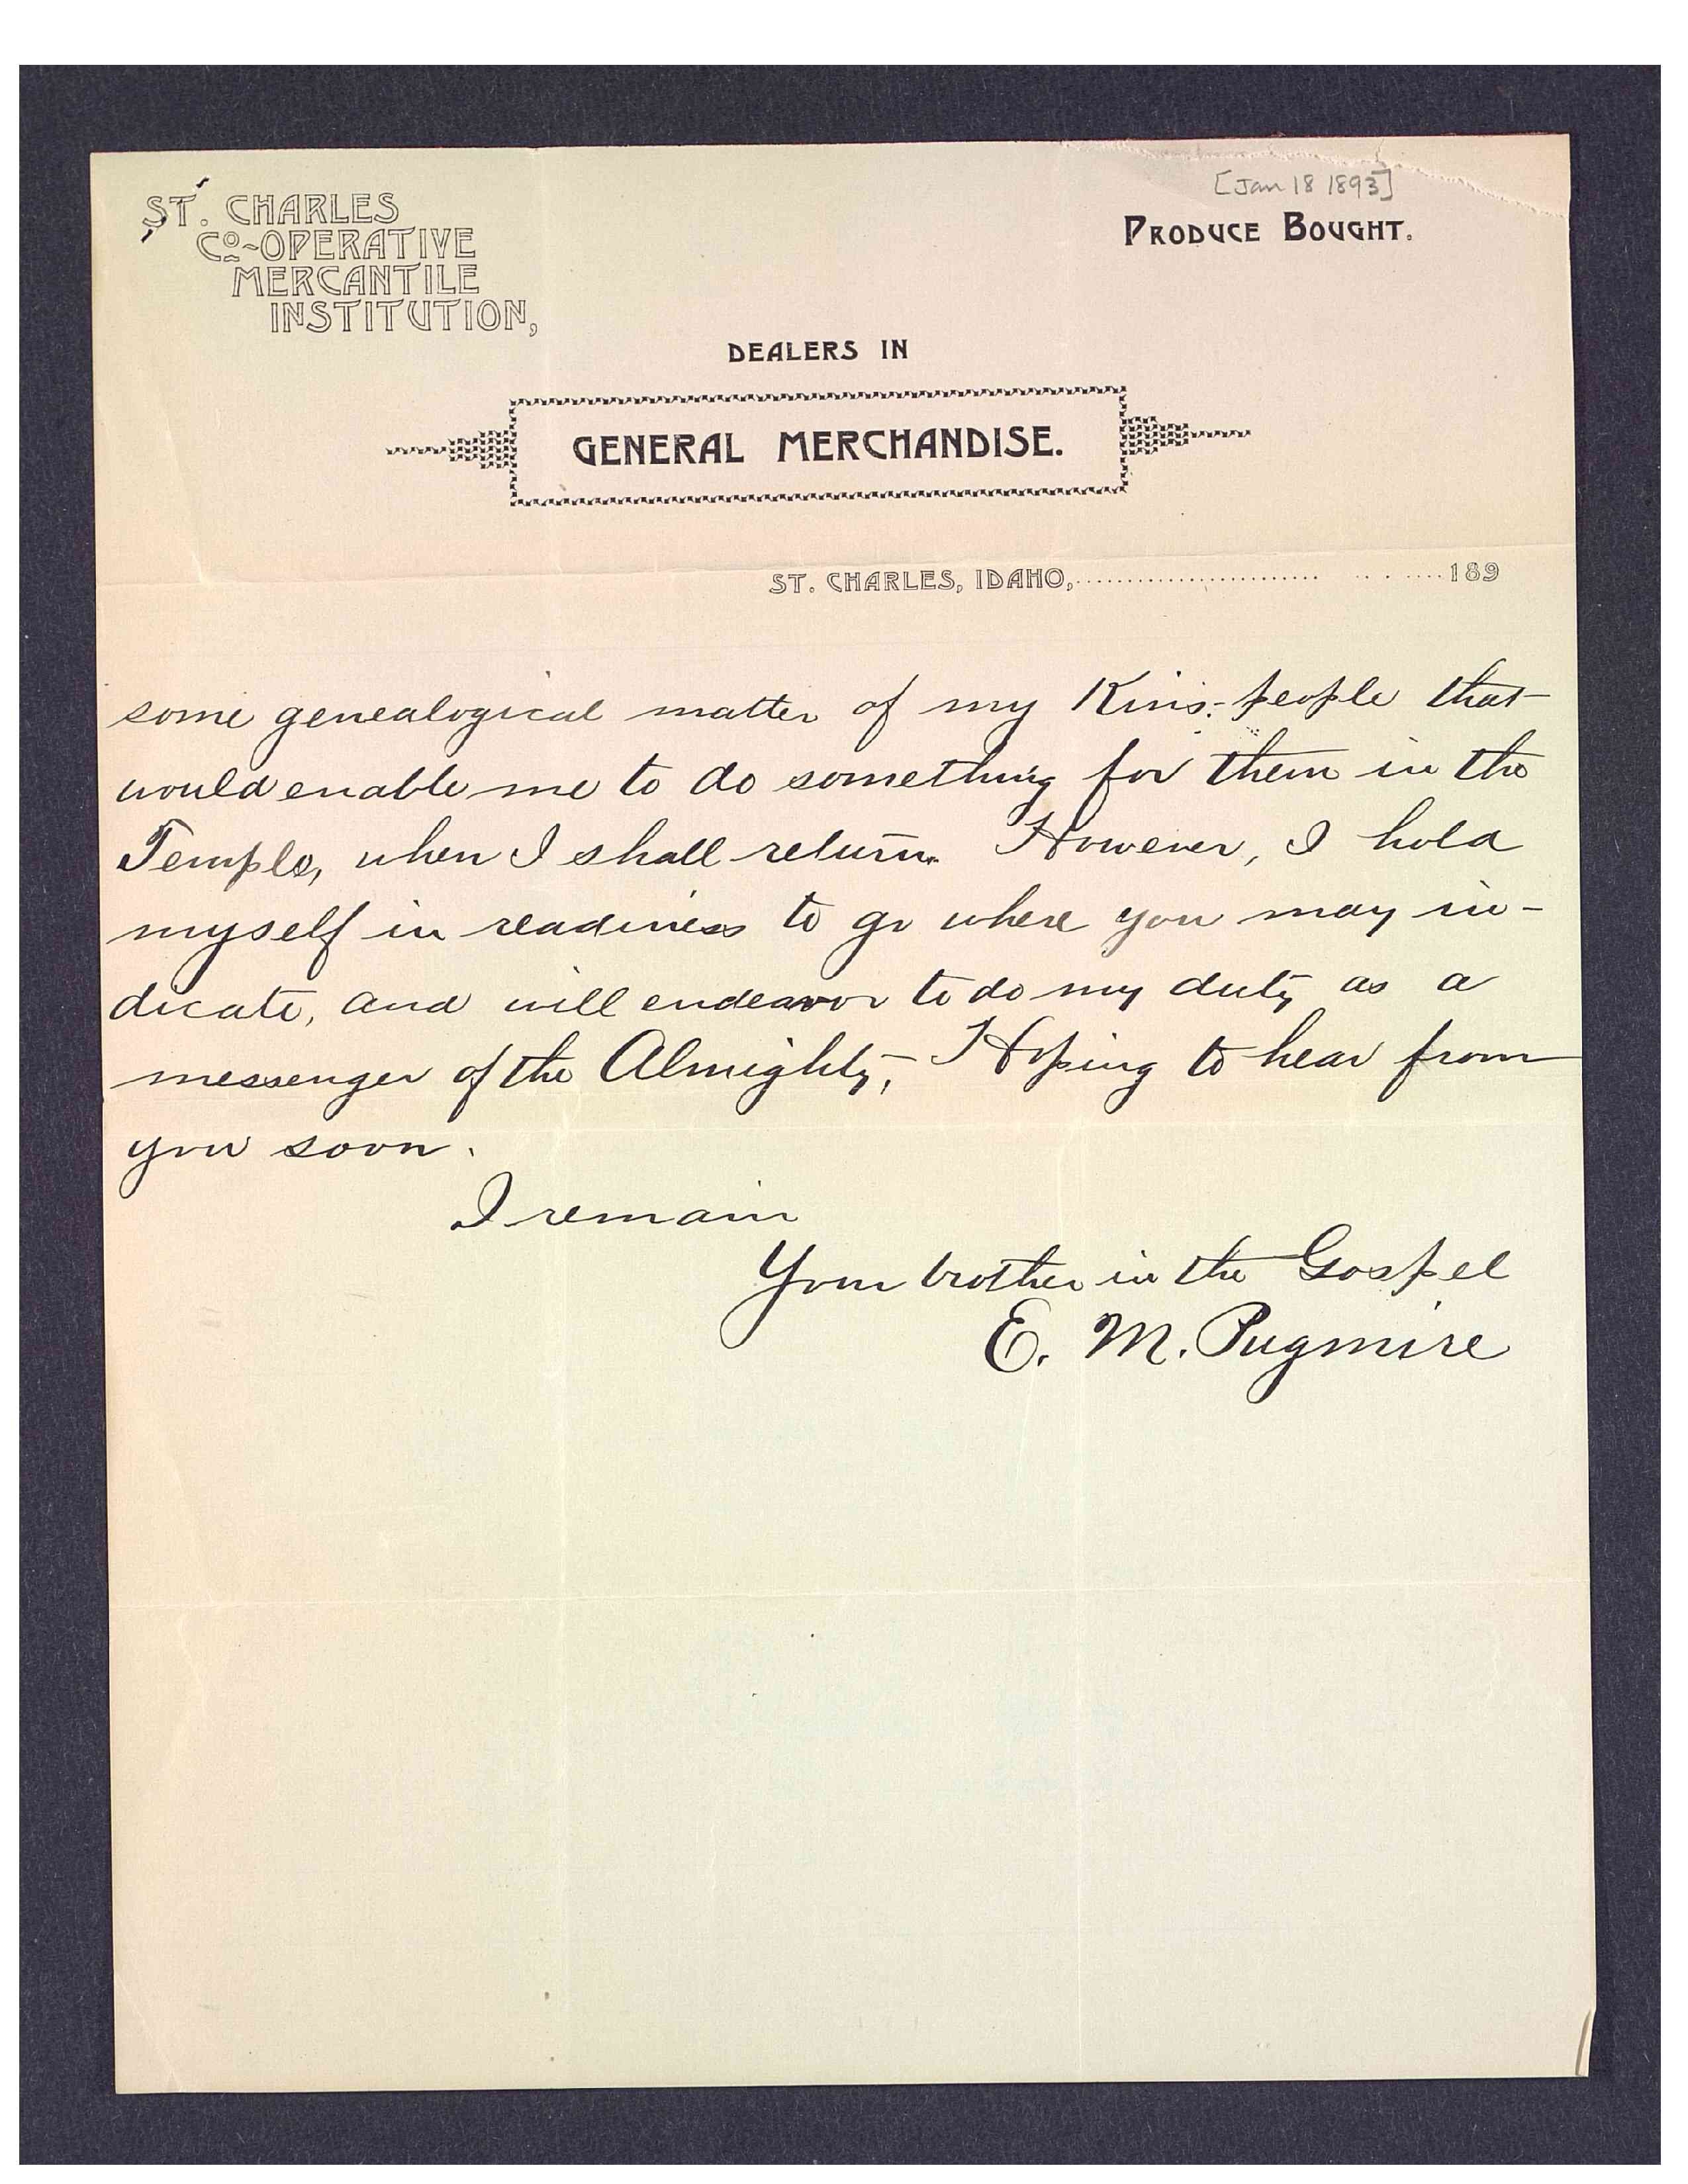 [Jan 18 1893]
ST. CHARLES
CO-OPERATIVE
MERCANTILE
INSTITUTION,
PRODUCE BOUGHT.
DEALERS IN
GENERAL MERCHANDISE.
ST. CHARLES, IDAHO, 189
some genealogical matter of my Kins-people that
would enable me to do something for them in the
Temple, when I shall return. However, I hold
myself in readiness to go where you may in-
dicate, and will endeavor to do my duty as a
messenger of the Almighty,- Hoping to hear from
you soon.
I remain
Your brother in the Gospel
E. M. Pugmire